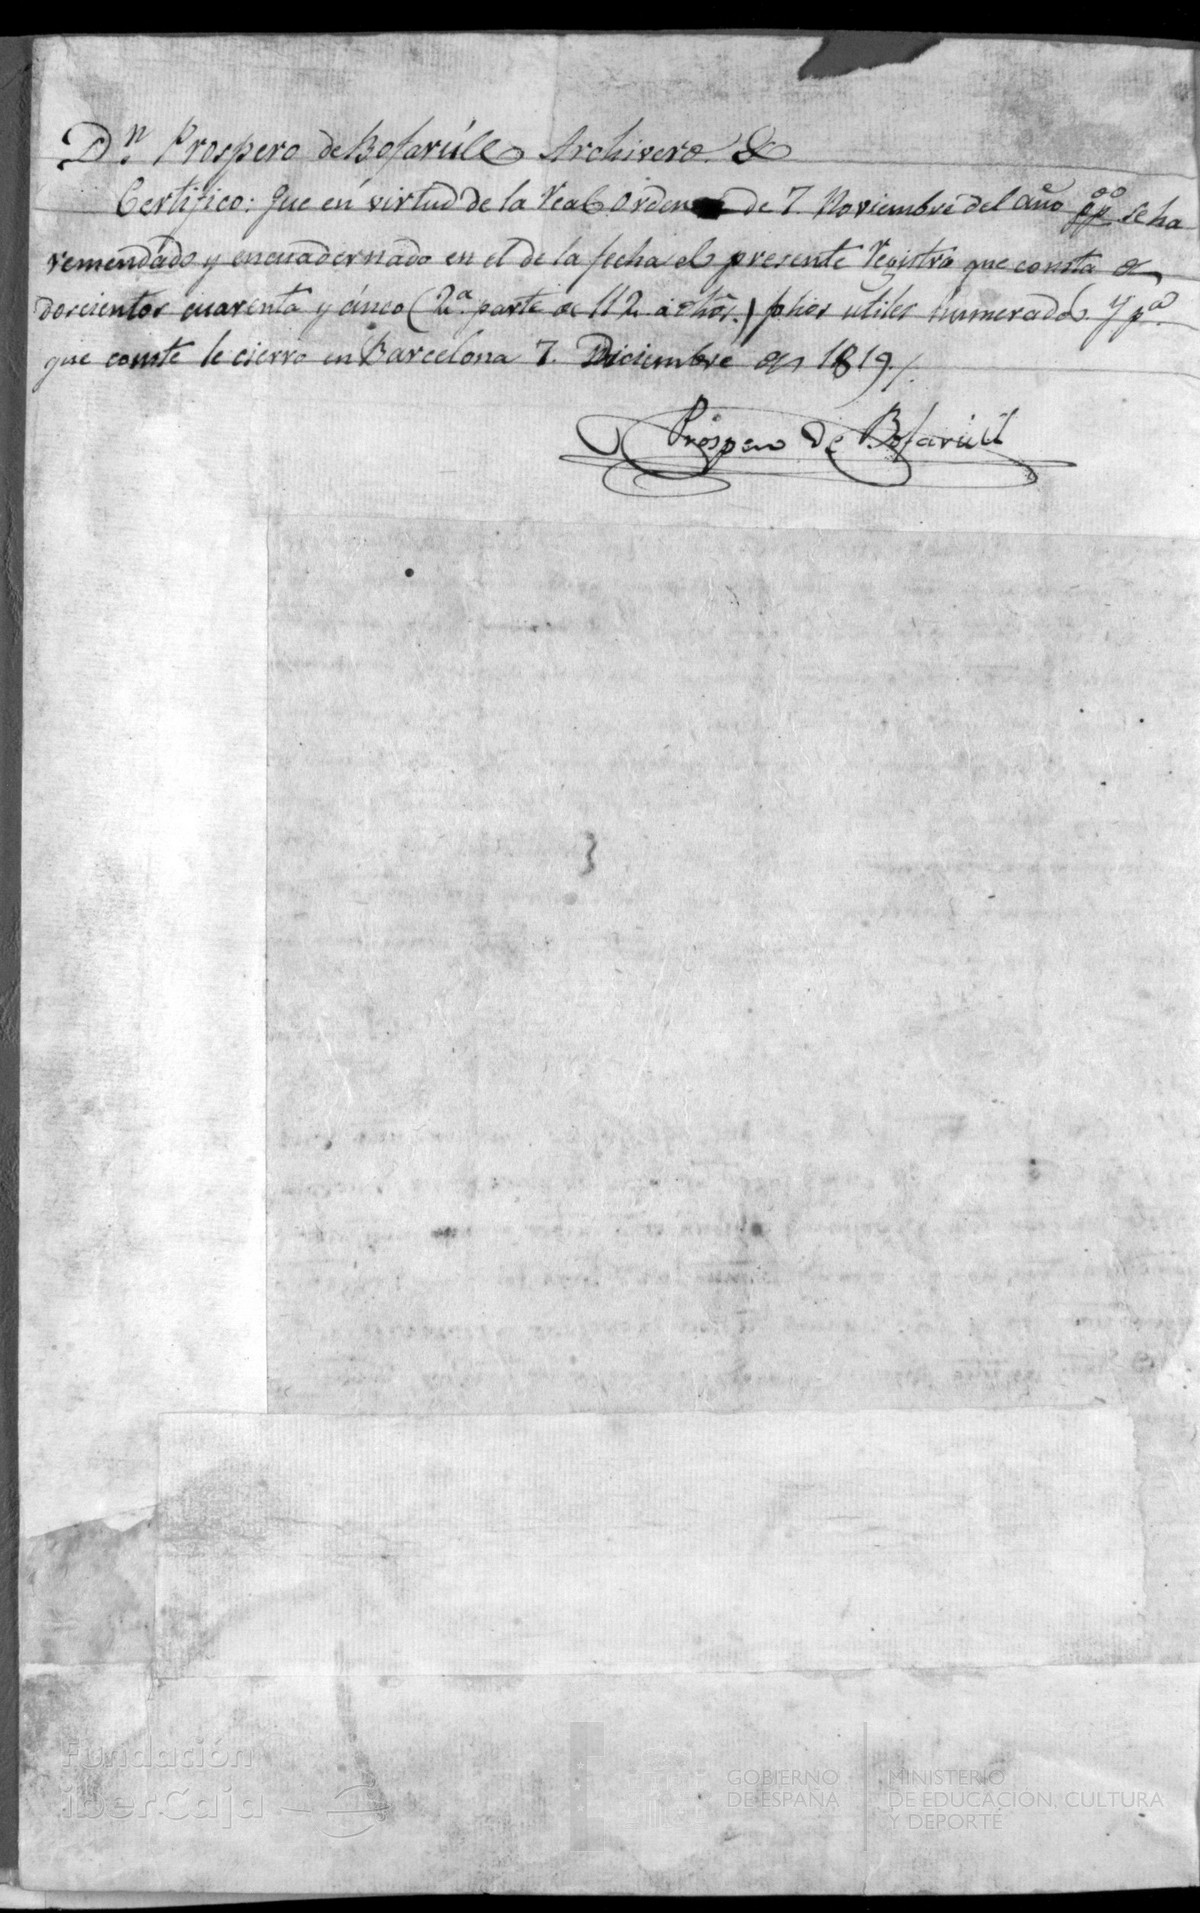 Dn. Prospero de Bofarúll Archivero &
Certifico: que en virtud de la Real orden de 7. Noviembre del año ppo. se ha
remendado y encuadernado en el de la fecha el presente Registro que consta de
doscientos cuarenta y cinco (2a. parte de 112 a dhos.) folios utiles numerados. Y pa.
que conste le cierro en Barcelona 7. Diciembre de 1819./.
Próspero de Bofarúll
Fundación
iberCaja
GOBIERNO
DE ESPAÑA
MINISTERIO
DE EDUCACIÓN, CULTURA
Y DEPORTE